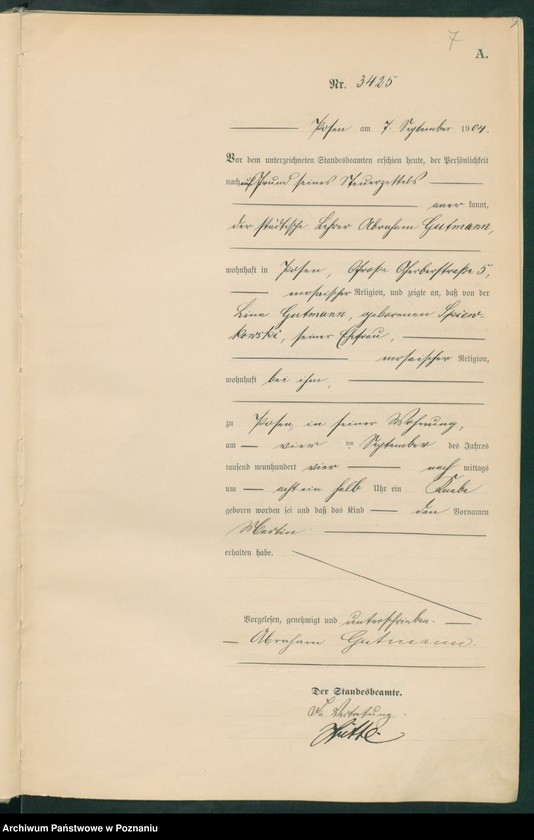 7
A.
Nr. 3425
Posen am 7. September 1904.
Vor dem unterzeichneten Standesbeamten erschien heute, der Persönlichkeit
nach auf Grund seines Steuerzettels
aner kannt,
der städtische Lehrer Abraham Gutmann,
wohnhaft in Posen, Große Gerberstraße 5,
mosaischer Religion, und zeigte an, daß von der
Lina Gutmann, geborenen Spiew-
kowski, seiner Ehefrau,
mosaischer Religion,
wohnhaft bei ihm,
zu Posen, in seiner Wohnung,
am vier ten September des Jahres
tausend neunhundert vier nach mittags
um acht ein halb Uhr ein Knabe
geboren worden sei und daß das Kind den Vornamen
Martin
erhalten habe.
Vorgelesen, genehmigt und unterschrieben.
Abraham Gutmann.
Der Standesbeamte.
In Vertretung.
Archiwum Państwowe w Poznaniu